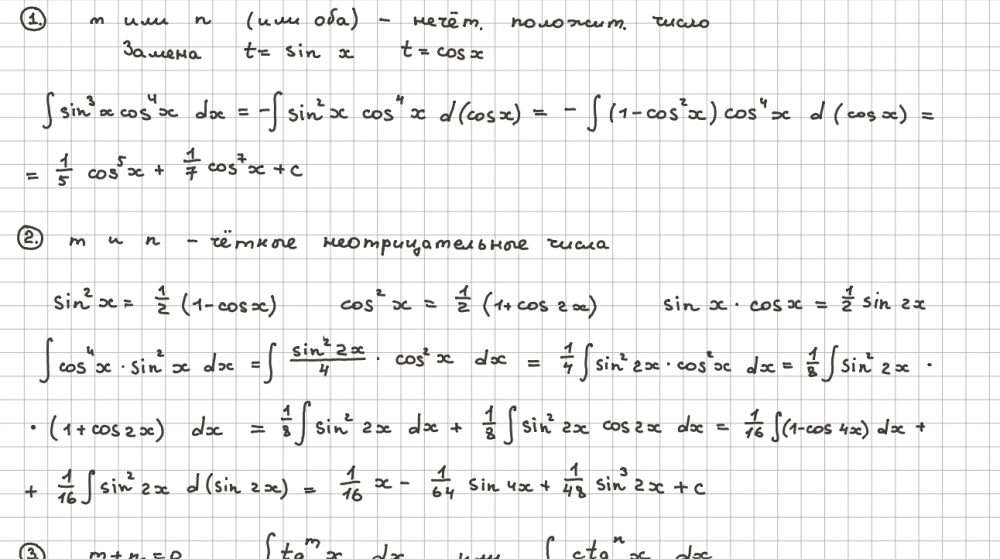 1. m или n (или оба) – нечёт. положит. число
Замена t = sin x t = cos x
∫ sin³x cos⁴x dx = -∫ sin²x cos⁴x d(cos x) = - ∫ (1-cos²x) cos⁴x d(cos x) =
= 1/5 cos⁵x + 1/7 cos⁷x + c
2. m и n – чётные неотрицательные числа
sin²x = 1/2 (1-cos x) cos²x = 1/2 (1+cos 2x) sin x · cos x = 1/2 sin 2x
∫ cos⁴x · sin²x dx = ∫ sin²2x/4 · cos²x dx = 1/4 ∫ sin²2x · cos²x dx = 1/8 ∫ sin²2x ·
· (1+cos 2x) dx = 1/8 ∫ sin²2x dx + 1/8 ∫ sin²2x cos 2x dx = 1/16 ∫ (1-cos 4x) dx +
+ 1/16 ∫ sin²2x d(sin 2x) = 1/16 x - 1/64 sin 4x + 1/48 sin³2x + c
3. m + n = 0 ∫ tgᵐx dx или ∫ ctgⁿx dx